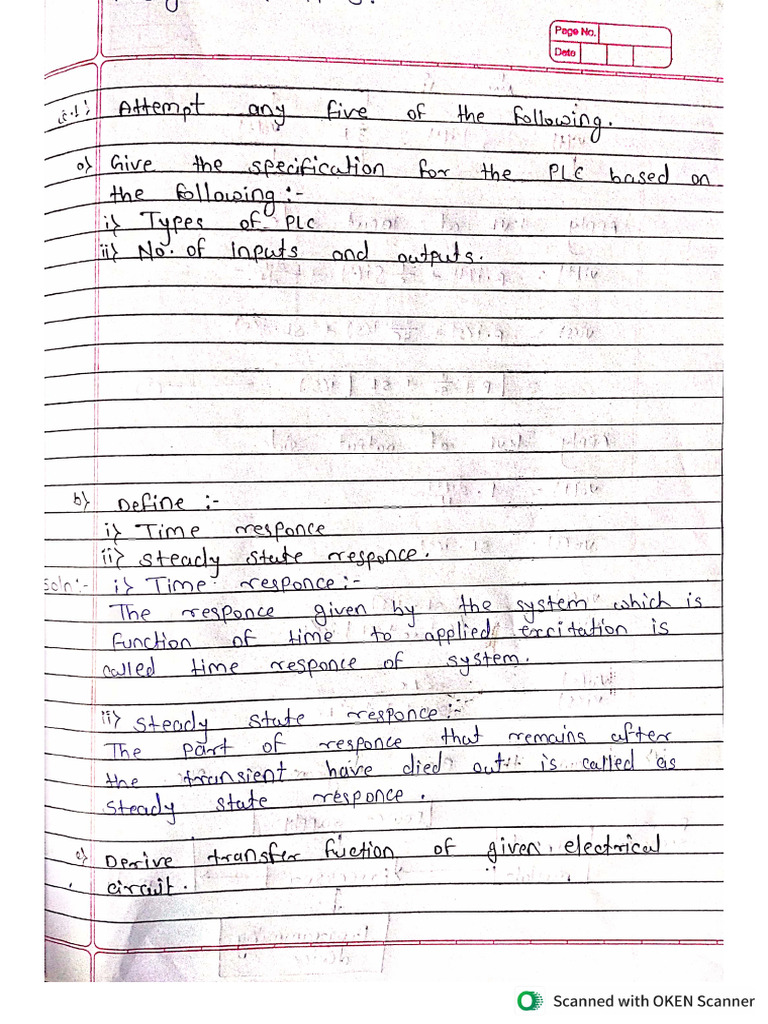 Page No.
Date
Attempt any five of the following.
a) Give the specification for the PLC based on
the following :-
i) Types of PLC
ii) No. of inputs and outputs.
b) Define :-
i) Time responce
ii) steady state responce.
soln:- i) Time responce:-
The responce given by the system which is
function of time to applied excitation is
called time responce of system.
ii) steady state responce:-
The part of responce that remains after
the transient have died out is called as
steady state responce.
c) Derive transfer fuction of given electrical
circuit.
Scanned with OKEN Scanner